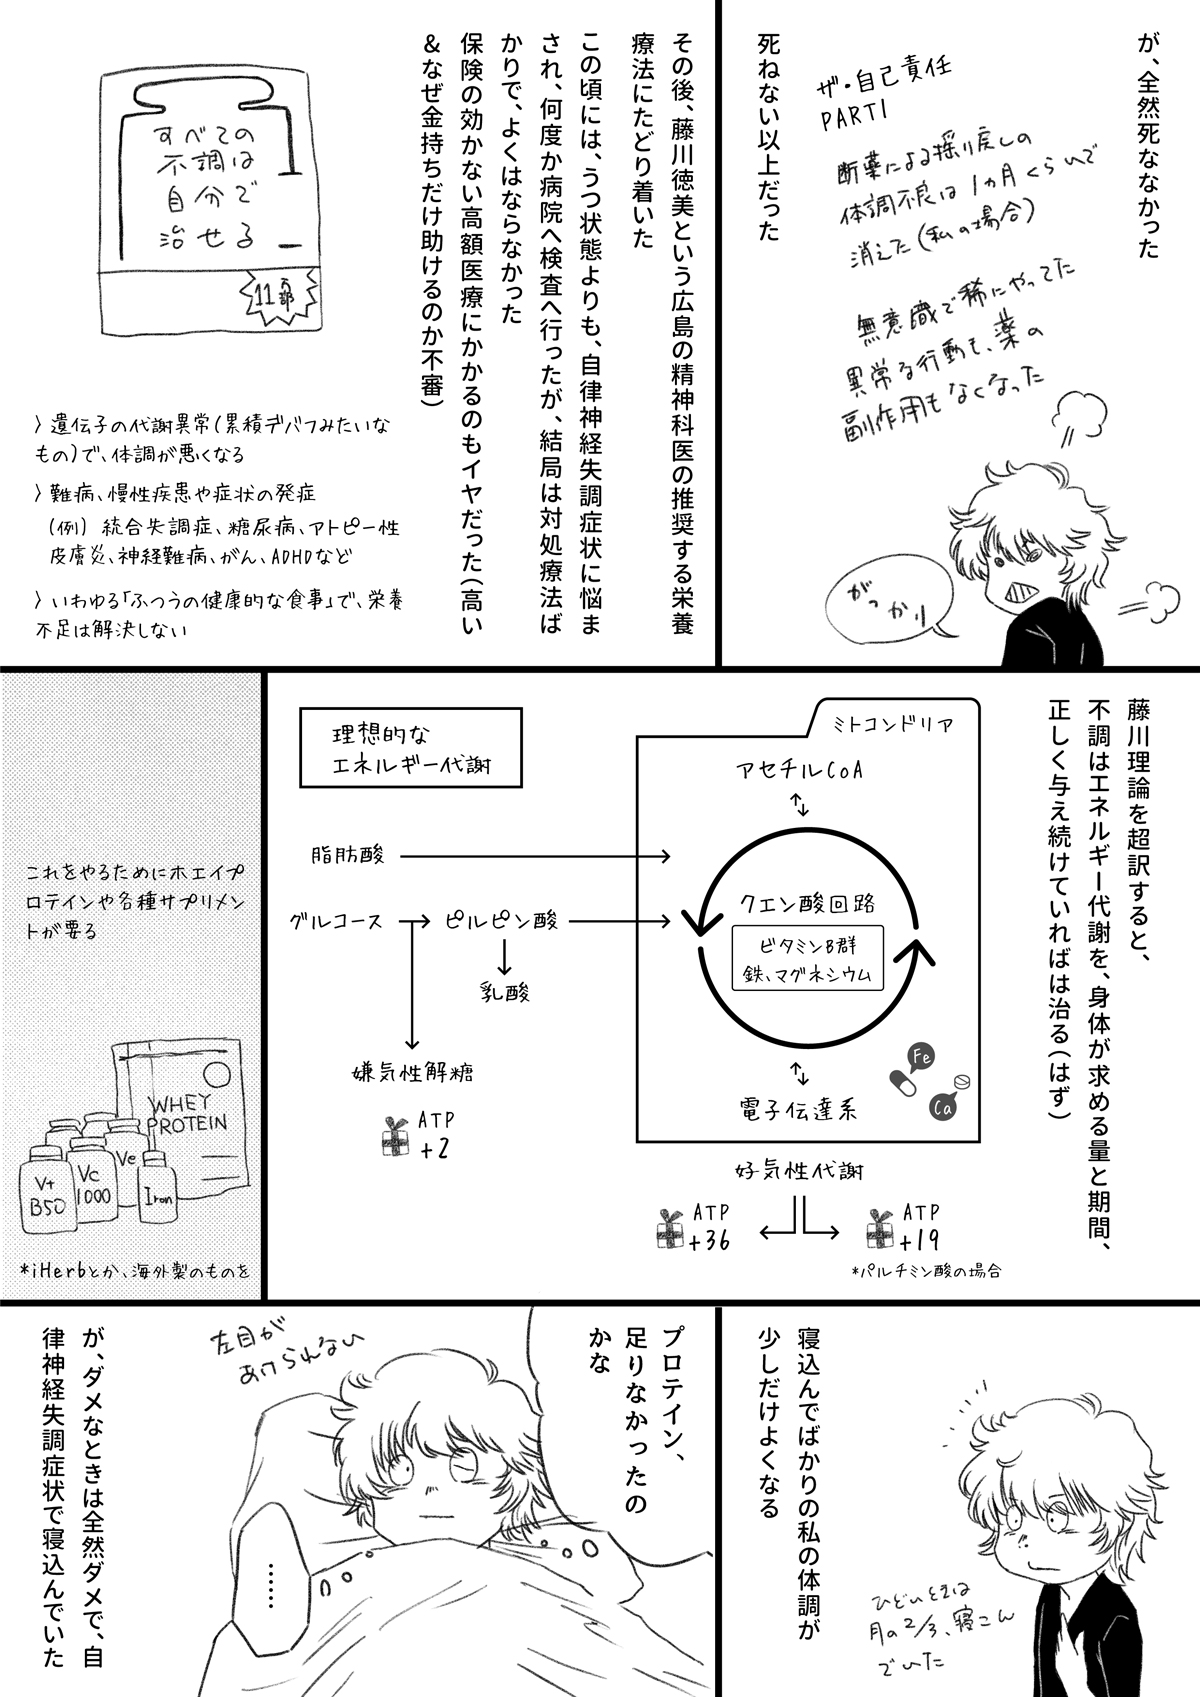 が、全然死ななかった
ザ・自己責任
PART1
断薬による揺り戻しの
体調不良は1ヵ月くらいで
消えた(私の場合)
無意識で稀にやってた
異常な行動も、薬の
副作用もなくなった
がっかり
死ねない以上だった
その後、藤川徳美という広島の精神科医の推奨する栄養
療法にたどり着いた
この頃には、うつ状態よりも、自律神経失調症状に悩ま
され、何度か病院へ検査へ行ったが、結局は対処療法ば
かりで、よくはならなかった
保険の効かない高額医療にかかるのもイヤだった(高い
&なぜ金持ちだけ助けるのか不審)
すべての
不調は
自分で
治せる
11万部
〉遺伝子の代謝異常(累積デバフみたいな
もの)で、体調が悪くなる
〉難病、慢性疾患や症状の発症
(例) 統合失調症、糖尿病、アトピー性
皮膚炎、神経難病、がん、ADHDなど
〉いわゆる「ふつうの健康的な食事」で、栄養
不足は解決しない
藤川理論を超訳すると、
不調はエネルギー代謝を、身体が求める量と期間、
正しく与え続けていればは治る(はず)
理想的な
エネルギー代謝
ミトコンドリア
アセチルCoA
脂肪酸
グルコース
ピルピン酸
乳酸
クエン酸回路
ビタミンB群
鉄、マグネシウム
Fe
Ca
電子伝達系
嫌気性解糖
ATP
+2
好気性代謝
ATP
+36
ATP
+19
*パルチミン酸の場合
これをやるためにホエイプ
ロテインや各種サプリメン
トが要る
WHEY
PROTEIN
V+
B50
Vc
1000
Ve
Iron
*iHerbとか、海外製のものを
寝込んでばかりの私の体調が
少しだけよくなる
ひどいときは
月の2/3、寝こん
でいた
プロテイン、
足りなかったの
かな
左目が
あけられない
……
が、ダメなときは全然ダメで、自
律神経失調症状で寝込んでいた